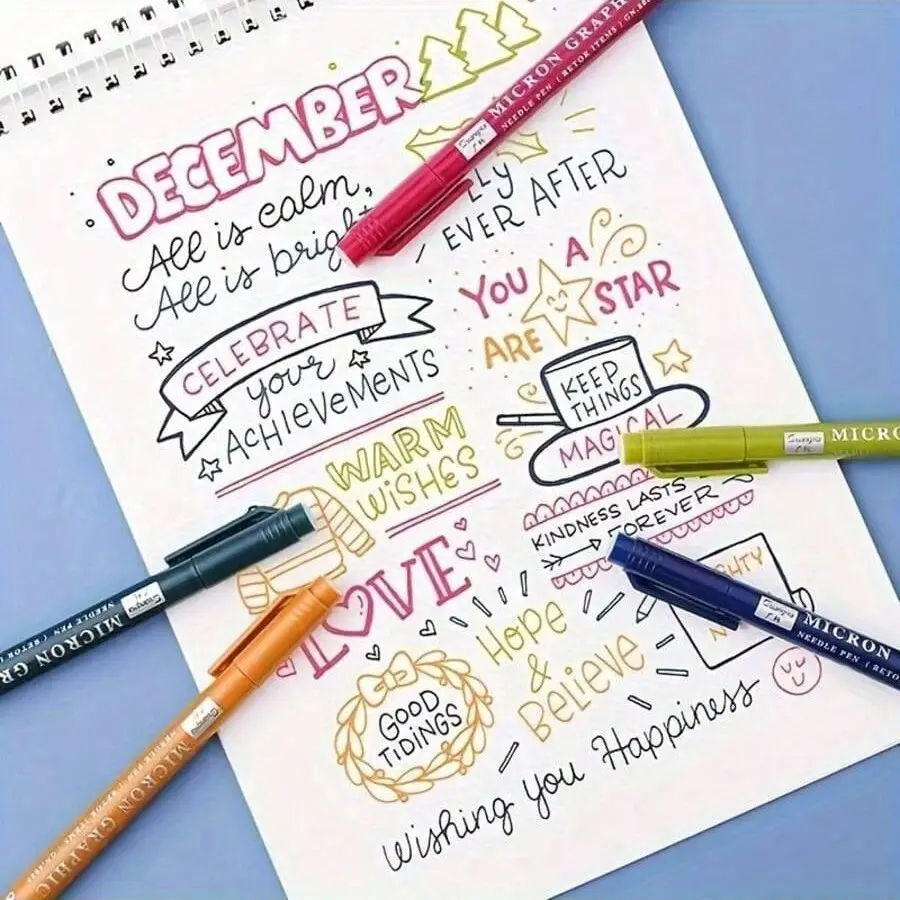 DECEMBER
All is calm,
All is bright
LLY
EVER AFTER
CELEBRATE
your
ACHIEVEMENTS
YOU A
ARE STAR
KEEP
THINGS
MAGICAL
WARM
WISHES
KINDNESS LASTS
FOREVER
LOVE
Hope
&
Believe
GOOD
TIDINGS
GHTY
N
Wishing you Happiness
MICRON GRAPH
NEEDLE PEN ( RETOR ITEMS ) GN.
MICRO
MICRON
NEEDLE PEN ( RETO
MICRON GR
NEEDLE PEN ( RETOR
MICRON GRAPHIC
NEEDLE PEN